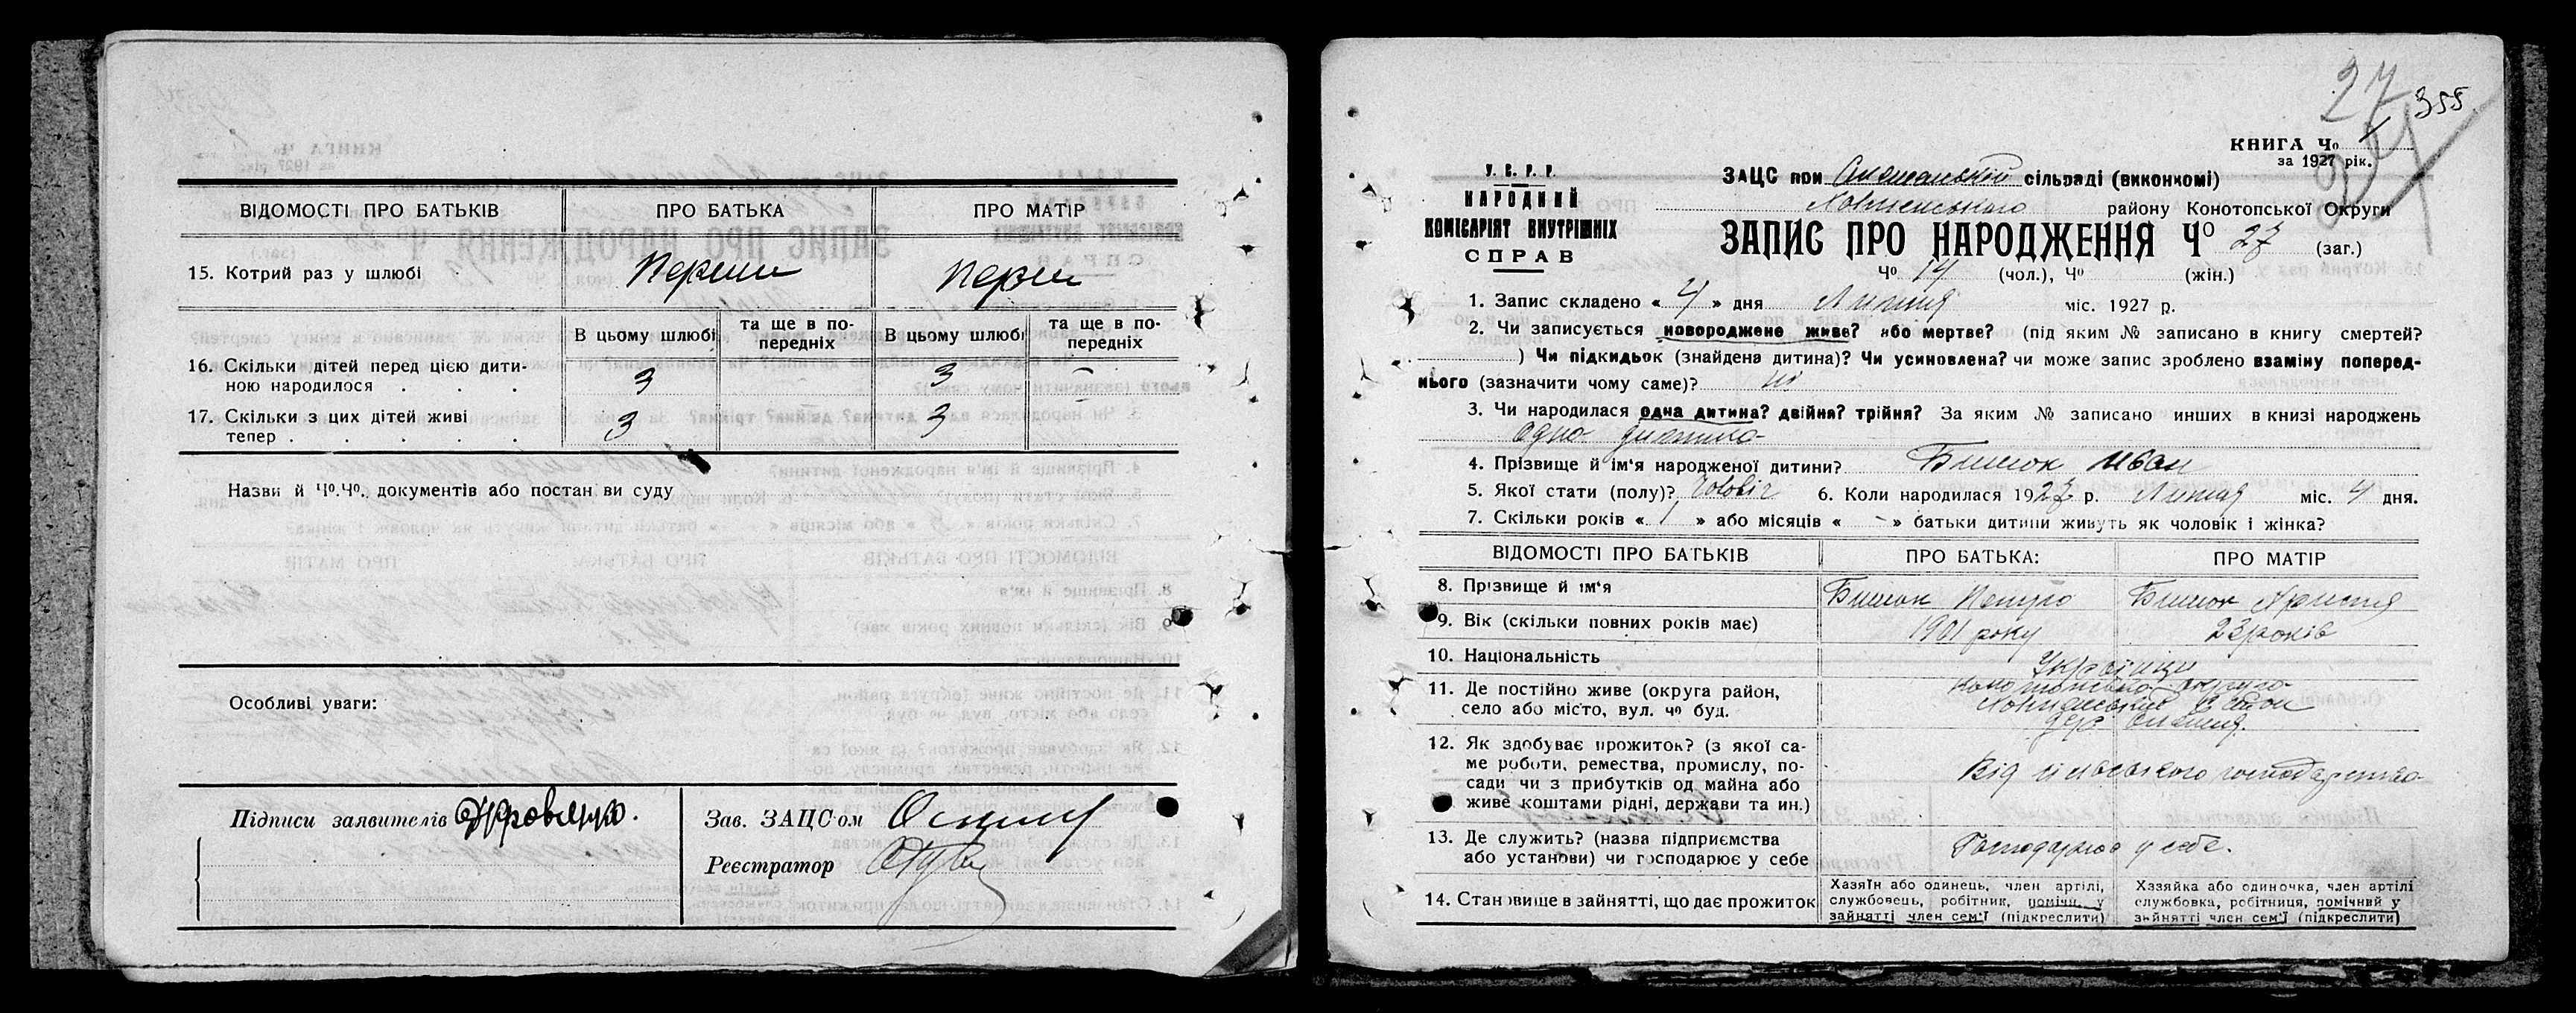 ВІДОМОСТІ ПРО БАТЬКІВ
ПРО БАТЬКА
ПРО МАТІР
15. Котрий раз у шлюбі
Перши
Перши
В цьому шлюбі
та ще в по-
передніх
В цьому шлюбі
та ще в по-
передніх
16. Скільки дітей перед цією дити-
ною народилося . . .
3
3
–
17. Скільки з цих дітей живі
тепер . . . . .
3
3
Назви й Чо.Чо. документів або постан ви суду
Особливі уваги:
Підписи заявителів
Зав. ЗАЦС-ом
Реєстратор
27
355
КНИГА Чо 1
за 1927 рік.
У. С. Р. Р.
НАРОДНИЙ
КОМІСАРІЯТ ВНУТРІШНІХ
СПРАВ
ЗАЦС при сільраді (виконкомі)
району Конотопської Округи
ЗАПИС ПРО НАРОДЖЕННЯ Чо 27 (заг.)
Чо 14 (чол.), Чо (жін.)
1. Запис складено « 4 » дня Липня міс. 1927 р.
2. Чи записується новороджене живе? або мертве? (під яким № записано в книгу смертей?
) Чи підкидьок (знайдена дитина)? Чи усиновлена? чи може запис зроблено взаміну поперед-
нього (зазначити чому саме)? ні
3. Чи народилася одна дитина? двійня? трійня? За яким № записано инших в книзі народжень
одна дитина
4. Прізвище й ім'я народженої дитини? Иван
5. Якої стати (полу)? 6. Коли народилася 1927 р. Липня міс. 4 дня.
7. Скільки років « 1 » або місяців « – » батьки дитини живуть як чоловік і жінка?
ВІДОМОСТІ ПРО БАТЬКІВ
ПРО БАТЬКА:
ПРО МАТІР
8. Прізвище й ім'я
Петро
9. Вік (скільки повних років має)
1901 року
23 років
10. Національність
Українці
11. Де постійно живе (округа район,
село або місто, вул. чо буд.
Конотопська округа
12. Як здобуває прожиток? (з якої са-
ме роботи, ремества, промислу, по-
сади чи з прибутків од майна або
живе коштами рідні, держави та ин.)
Від сільського господарства
13. Де служить? (назва підприємства
або установи) чи господарює у себе
Господарює у себе.
14. Становище в зайнятті, що дає прожиток
Хазяїн або одинець, член артілі,
службовець, робітник, помічн. у
зайнятті член сем'ї (підкреслити)
Хазяйка або одиночка, член артілі
службовка, робітниця, помічний у
зайнятті член сем'ї (підкреслити)